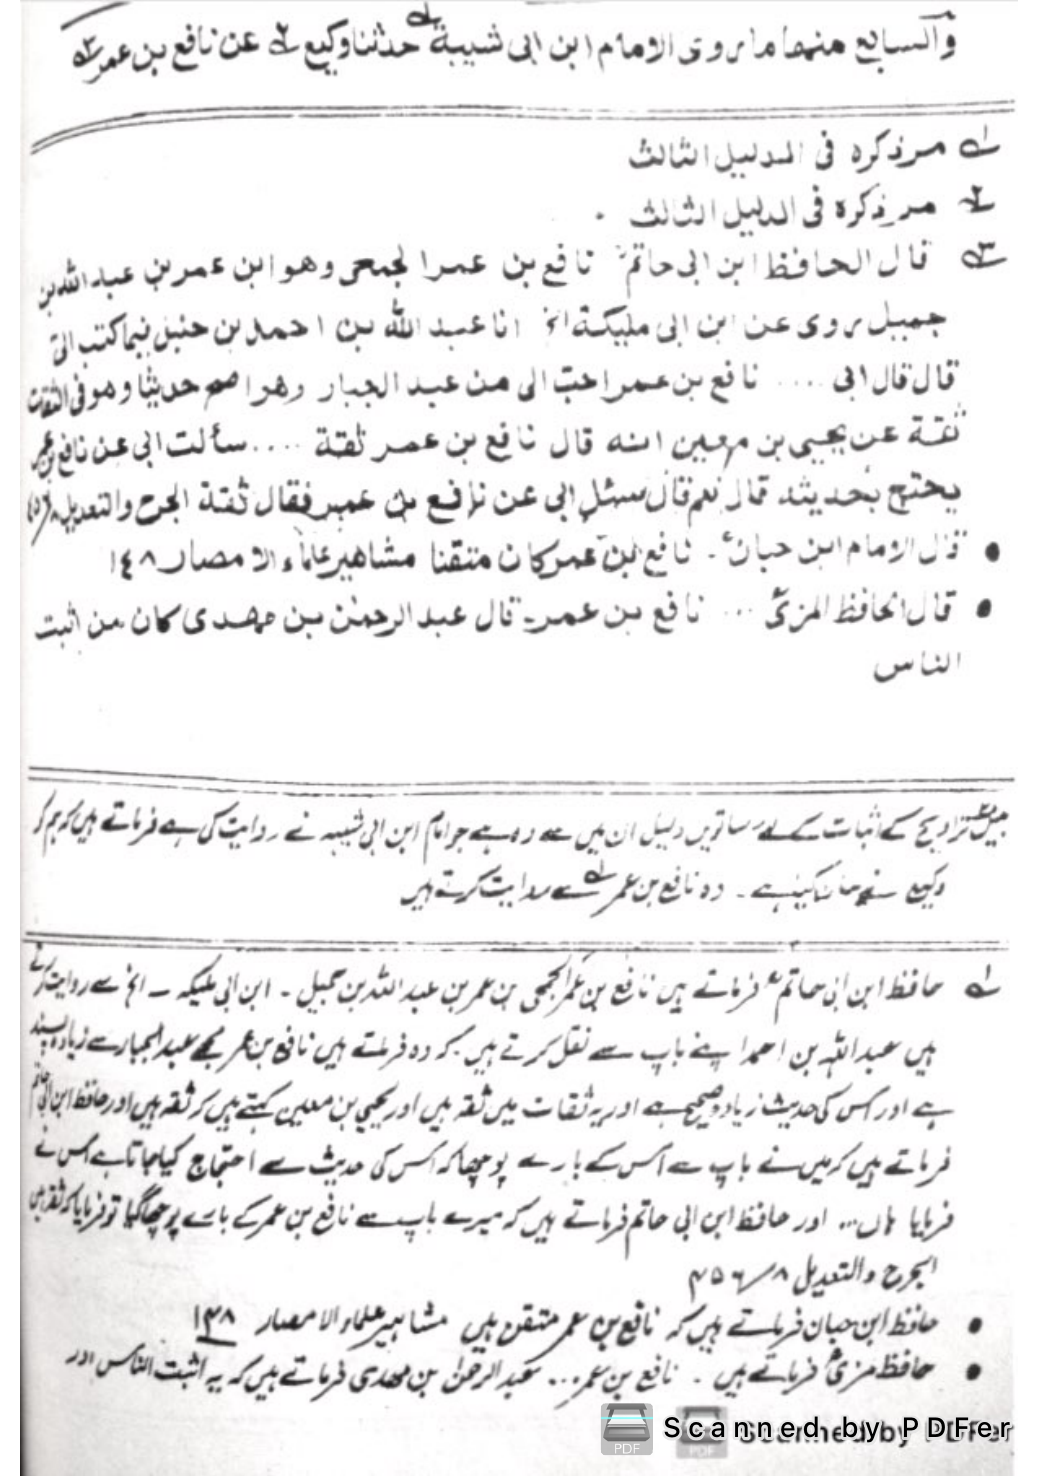 والسابع منها ما روى الامام ابن ابى شيبة ؒ حدثنا وكيع عن نافع بن عمر
١ مر ذكره فى الدليل الثالث
٢ مر ذكره فى الدليل الثالث
٣ قال الحافظ ابن ابى حاتم نافع بن عمر الجمعى وهو ابن عمر بن عبد الله بن
جميل روى عن ابن ابى مليكة الخ انا عبد الله بن احمد بن حنبل فيما كتب الىّ
قال قال ابى .... نافع بن عمر احب الى من عبد الجبار وهو اصح حديثا وهو فى الثقات
ثقة عن يحيى بن معين انه قال نافع بن عمر ثقة .... سألت ابى عن نافع بن عمر
يحتج بحديثه قال نعم قال سئل ابى عن نافع بن عمر فقال ثقة الجرح والتعديل
• قال الامام ابن حبان ۔ نافع بن عمر كان متقنا مشاهير علماء الامصار ١٤٨
• قال الحافظ المزى ... نافع بن عمر۔ قال عبد الرحمٰن بن مهدى كان من اثبت
الناس
بیس تراویح کے اثبات کے لئے ساتویں دلیل ان میں سے وہ ہے جو امام ابن ابی شیبہ نے روایت کی ہے فرماتے ہیں کہ ہم کو
وکیع نے بیان کیا ہے ۔ وہ نافع بن عمر سے روایت کرتے ہیں
١ حافظ ابن ابی حاتم فرماتے ہیں نافع بن عمر الجمحی بن عمر بن عبد اللہ بن جمیل ۔ ابن ابی ملیکہ ۔ الخ سے روایت کرتے
ہیں عبد اللہ بن احمد اپنے باپ سے نقل کرتے ہیں۔ کہ وہ فرماتے ہیں نافع بن عمر مجھے عبد الجبار سے زیادہ پسند
ہے اور اس کی حدیث زیادہ صحیح ہے اور یہ ثقات میں ثقہ ہیں اور یحیی بن معین کہتے ہیں کہ ثقہ ہیں اور حافظ ابن ابی حاتم
فرماتے ہیں کہ میں نے باپ سے اس کے بارے پوچھا کہ اس کی حدیث سے احتجاج کیا جاتا ہے اس نے
فرمایا ہاں... اور حافظ ابن ابی حاتم فرماتے ہیں کہ میرے باپ سے نافع بن عمر کے بارے پوچھا گیا تو فرمایا کہ ثقہ ہیں
الجرح والتعدیل ۸/۴۵۶
• حافظ ابن حبان فرماتے ہیں کہ نافع بن عمر متقن ہیں مشاہیر علماء الامصار ۱۴۸
• حافظ مزی فرماتے ہیں ۔ نافع بن عمر... عبد الرحمٰن بن مھدی فرماتے ہیں کہ یہ اثبت الناس اور
Scanned by PDFer
Scanned by PDFer